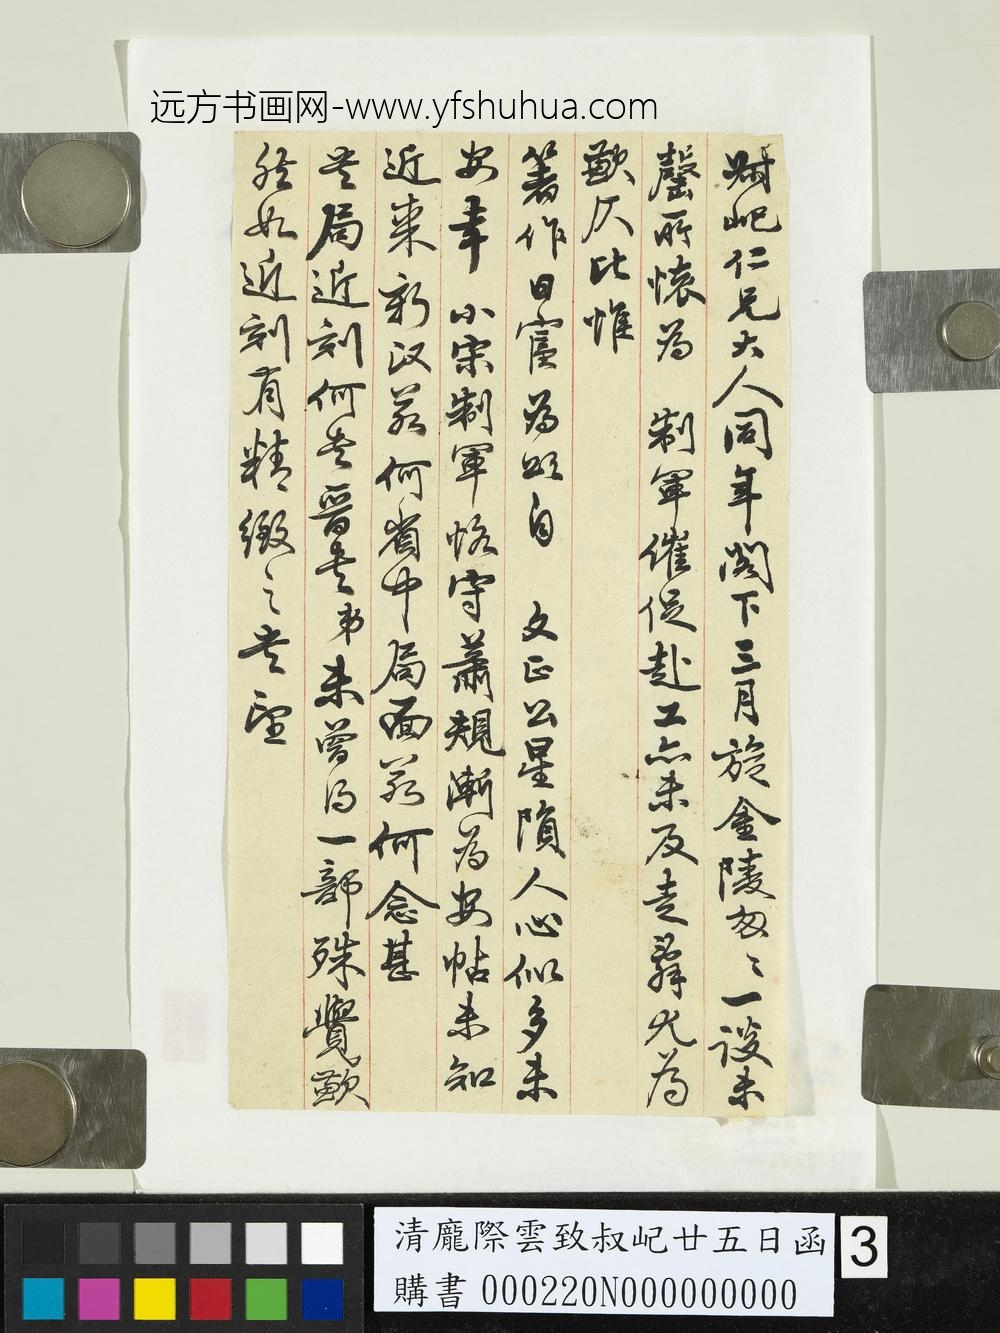 远方书画网-www.yfshuhua.com
尗屺仁兄大人同年閣下三月旋金陵匆匆一談未
罄所懷為 制軍催促赴工亦未及走辭尤為
歉仄比惟
箸作日富為頌自 文正公星隕人心似多未
安幸 小宋制軍恪守蕭規漸為安帖未知
近來新政若何省中局面若何念甚
書局近刻何書晉書弟未曾得一部殊覺歉
然如近刻有精緻之書望
清龐際雲致叔屺廿五日函
購書 000220N000000000
3